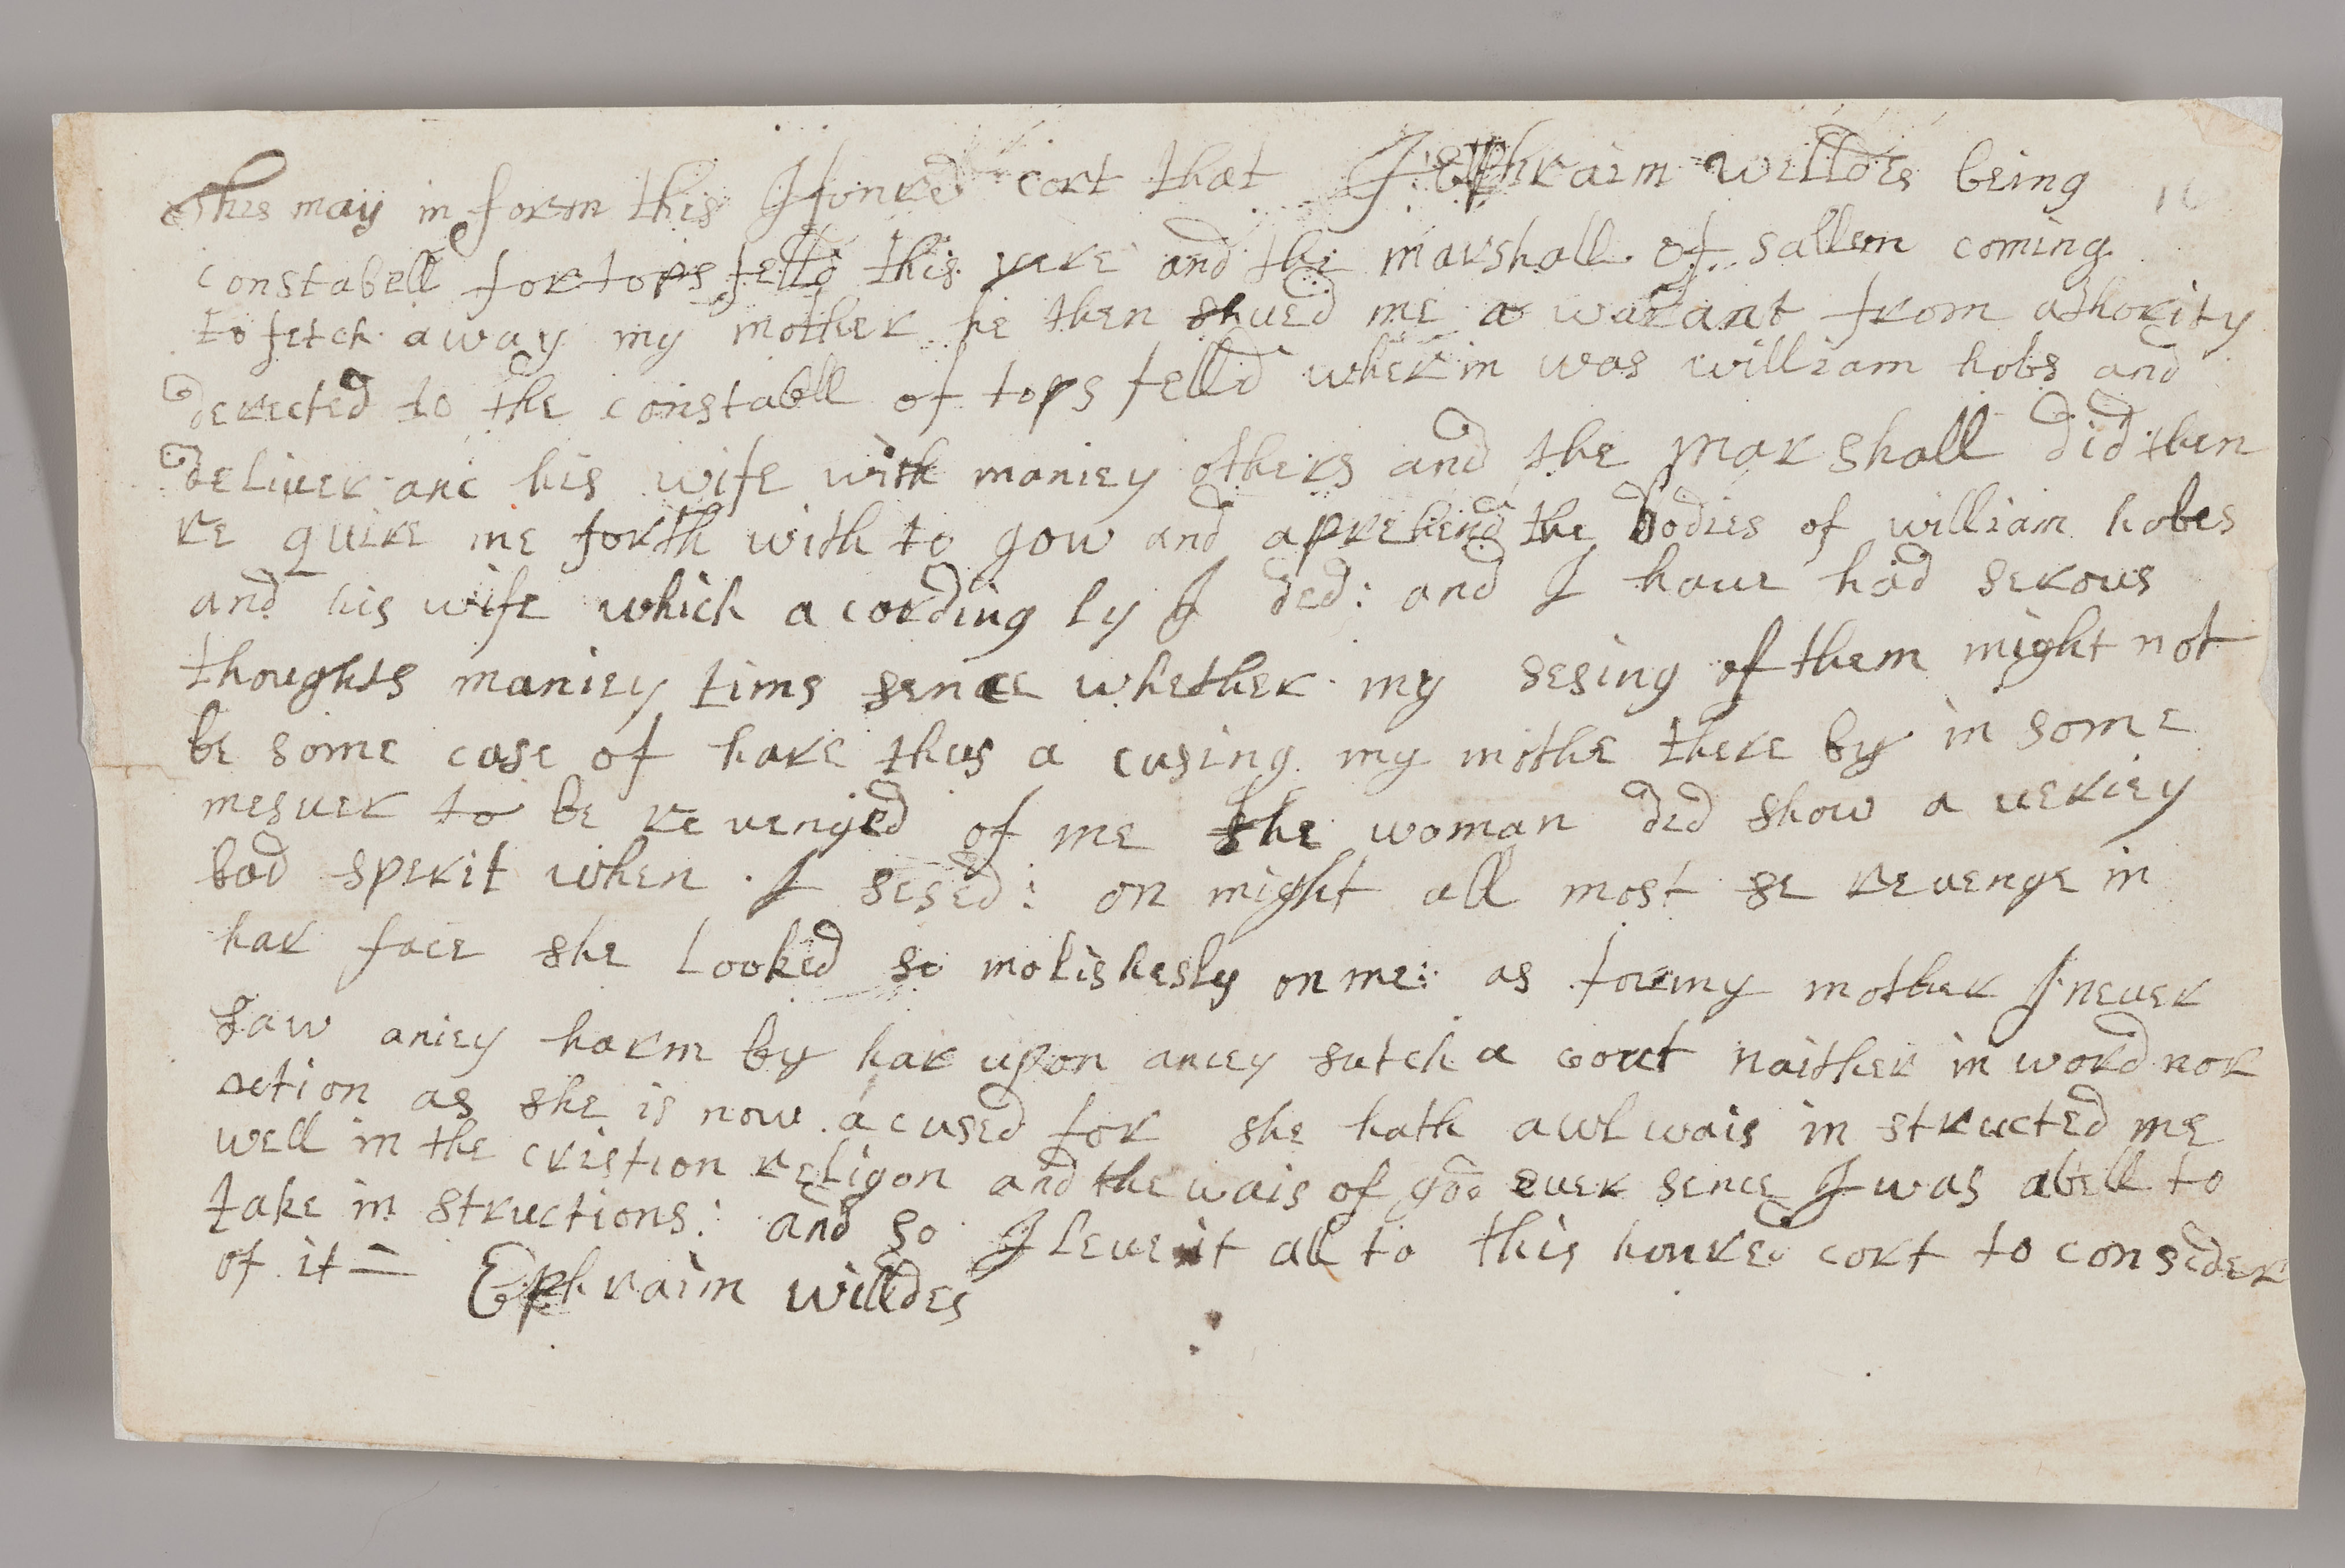 This may in form this Honred cort that I Ephraim willdes being
constabell for topsfelld this yere and the marshall of sallem coming
to fetch away my mother he then shued me a warant from athority
derected to the constabll of topsfelld wherin was william hobs and
deliueranc his wife with maniey others and the marshall did then
re quire me forth with to gow and aprehend the bodies of william hobes
and his wife which acording ly I ded: and I haue had serous
thoughts maniey tims sence whether my sesing of them might not
be some case of hare thus a cusing my mothe there by in some
mesuer to be re uenged of me the woman ded show a ueriey
bad sperit when I sesed: on might all most se reuenge in
har face she looked so molishesly on me: as for my mother I neuer
saw aniey harm by har upon aniey sutch a cout naither in word nor
action as she is now acused for she hath awlwais in structed me
well in the cristion religon and the wais of god euer sence I was abell to
take in structions: and so I leue it all to this honred cort to consider
of it =
Ephraim willdes